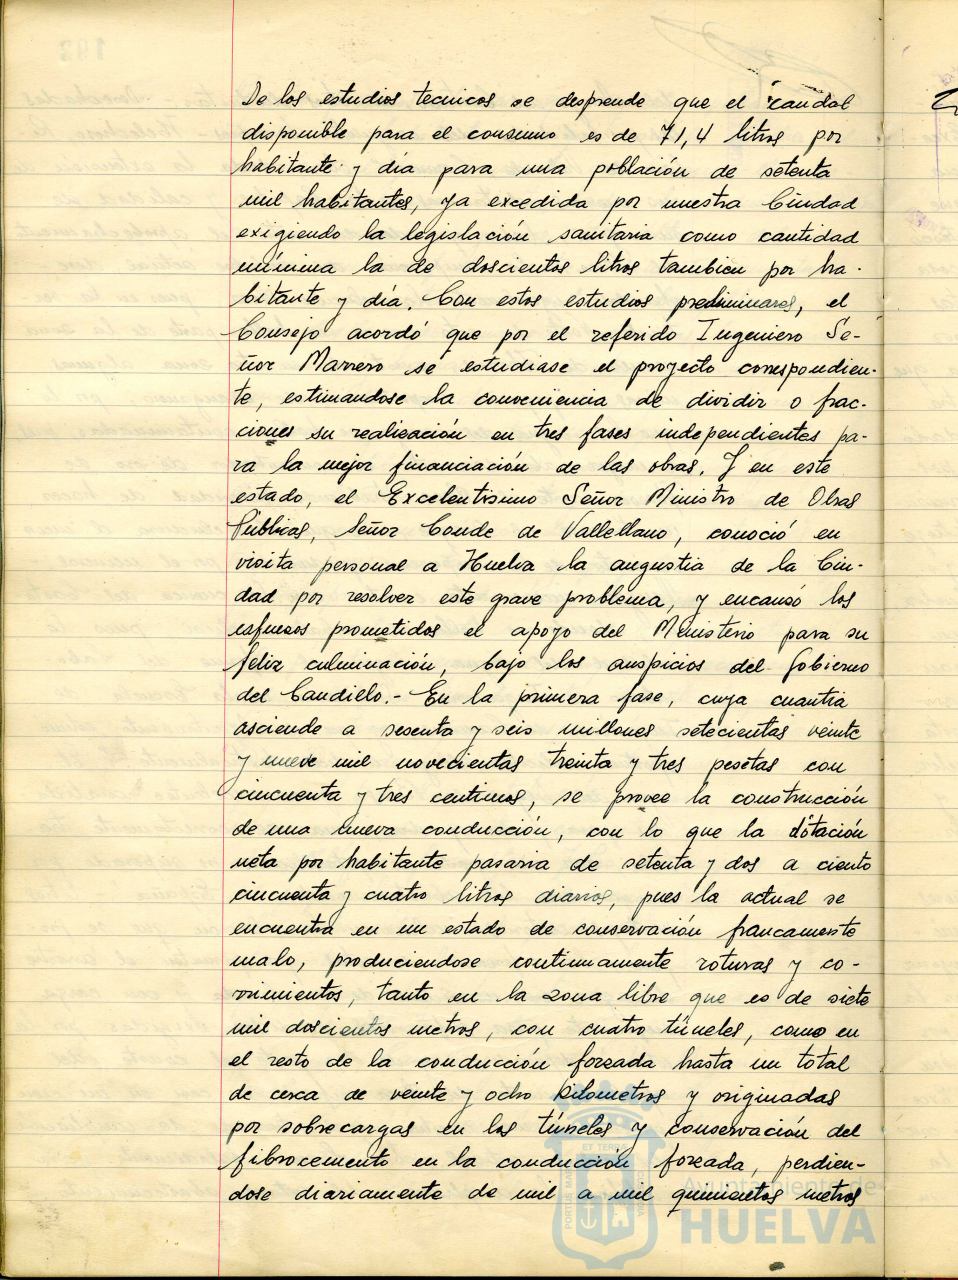 De los estudios tecnicos se desprende que el caudal
disponible para el consumo es de 71,4 litros por
habitante y día para una población de setenta
mil habitantes, ya excedida por nuestra Ciudad
exigiendo la legislación sanitaria como cantidad
mínima la de doscientos litros tambien por ha-
bitante y día. Con estos estudios preliminares, el
Consejo acordó que por el referido Ingeniero Se-
ñor Marrero se estudiase el proyecto correspondien-
te, estimandose la conveniencia de dividir o frac-
ciones su realización en tres fases independientes pa-
ra la mejor financiación de las obras. Y en este
estado, el Excelentisimo Señor Ministro de Obras
Públicas, Señor Conde de Vallellano, conoció en
visita personal a Huelva la angustia de la Ciu-
dad por resolver este grave problema, y encauzó los
esfuezos prometidos el apoyo del Ministerio para su
feliz culminación, bajo los auspicios del Gobierno
del Caudillo.- En la primera fase, cuya cuantia
asciende a sesenta y seis millones setecientas veinte
y nueve mil novecientas treinta y tres pesetas con
cincuenta y tres centimos, se provee la construcción
de una nueva conducción, con lo que la dotación
neta por habitante pasaria de setenta y dos a ciento
cincuenta y cuatro litros diarios, pues la actual se
encuentra en un estado de conservación francamente
malo, produciendose continuamente roturas y co-
rrimientos, tanto en la zona libre que es de siete
mil doscientos metros, con cuatro túneles, como en
el resto de la conducción forzada hasta un total
de cerca de veinte y ocho kilometros y originadas
por sobrecargas en los túneles y conservación del
fibrocemento en la conducción forzada, perdien-
dose diariamente de mil a mil quinientos metros
Ayuntamiento de
HUELVA